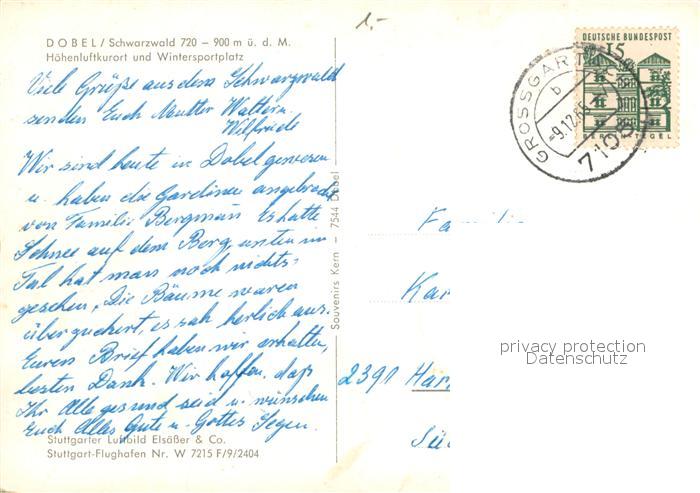 1.-
DOBEL / Schwarzwald 720 – 900 m ü. d. M.
Höhenluftkurort und Wintersportplatz
Viele Grüße aus dem Schwarzwald
senden Euch Mutter Walter u.
Wilfriede
Wir sind heute in Dobel gewesen
u. haben die Gardinen angebracht
von Familie Bergmann Es hatte
Schnee auf dem Berg unten im
Tal hat man noch nichts
gesehen, Die Bäume waren
überzuckert, es sah herlich aus.
Euren Brief haben wir erhalten,
besten Dank. Wir hoffen, daß
Ihr Alle gesund seid u. wünschen
Euch Alles Gute u. Gottes Segen.
Stuttgarter Luftbild Elsäßer & Co.
Stuttgart-Flughafen Nr. W 7215 F/9/2404
Souvenirs Kern – 7544 Dobel
DEUTSCHE BUNDESPOST
15
TEGEL
GROSSGARTACH
b
-9.12.65
7103
Famili
Kar
2391 Har
Sü
privacy protection
Datenschutz